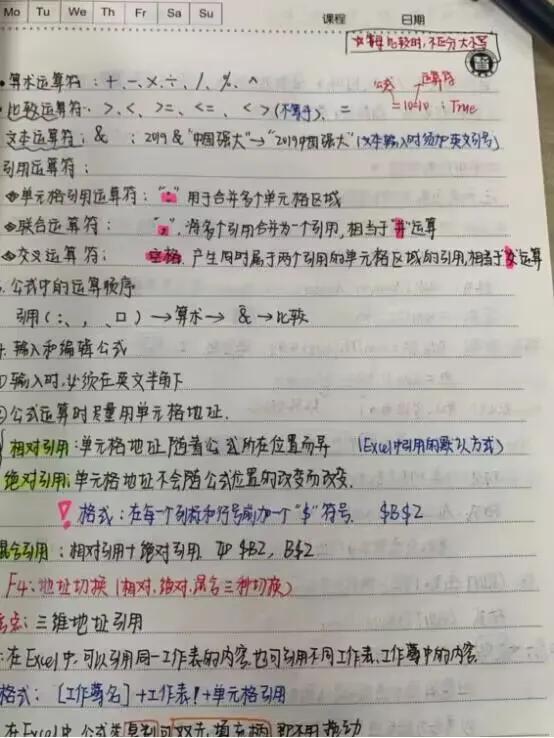 Mo Tu We Th Fr Sa Su
课程 日期
字母比较时,不区分大小写
·算术运算符:+、-、×、÷、/、%、^
公式 运算符
·比较运算符:>、<、>=、<=、<>(不等于)、= =10=10:True
文本运算符:&:2019&"中国强大"→"2019中国强大"(文本输入时须加英文引号)
引用运算符:
◆单元格引用运算符:":"用于合并多个单元格区域
◆联合运算符:",",将多个引用合并为一个引用,相当于"并"运算
◆交叉运算符:空格,产生同时属于两个引用的单元格区域的引用,相当于"交"运算
公式中的运算顺序
引用(:、,、□)→算术→&→比较
输入和编辑公式
①输入时,必须在英文半角下
②公式运算时尽量用单元格地址.
相对引用:单元格地址随着公式所在位置而异 (Excel中引用的默认方式)
绝对引用:单元格地址不会随公式位置的改变而改变.
! 格式:在每一个列标和行号前加一个"$"符号. $B$2
混合引用:相对引用+绝对引用 如$B2,B$2
F4:地址切换(相对、绝对、混合三种切换)
三维地址引用
:在Excel中,可以引用同一工作表的内容,也可引用不同工作表、工作簿中的内容.
格式:[工作簿名]+工作表!+单元格引用
在Excel中,公式类 可双击填充柄 即不用拖动